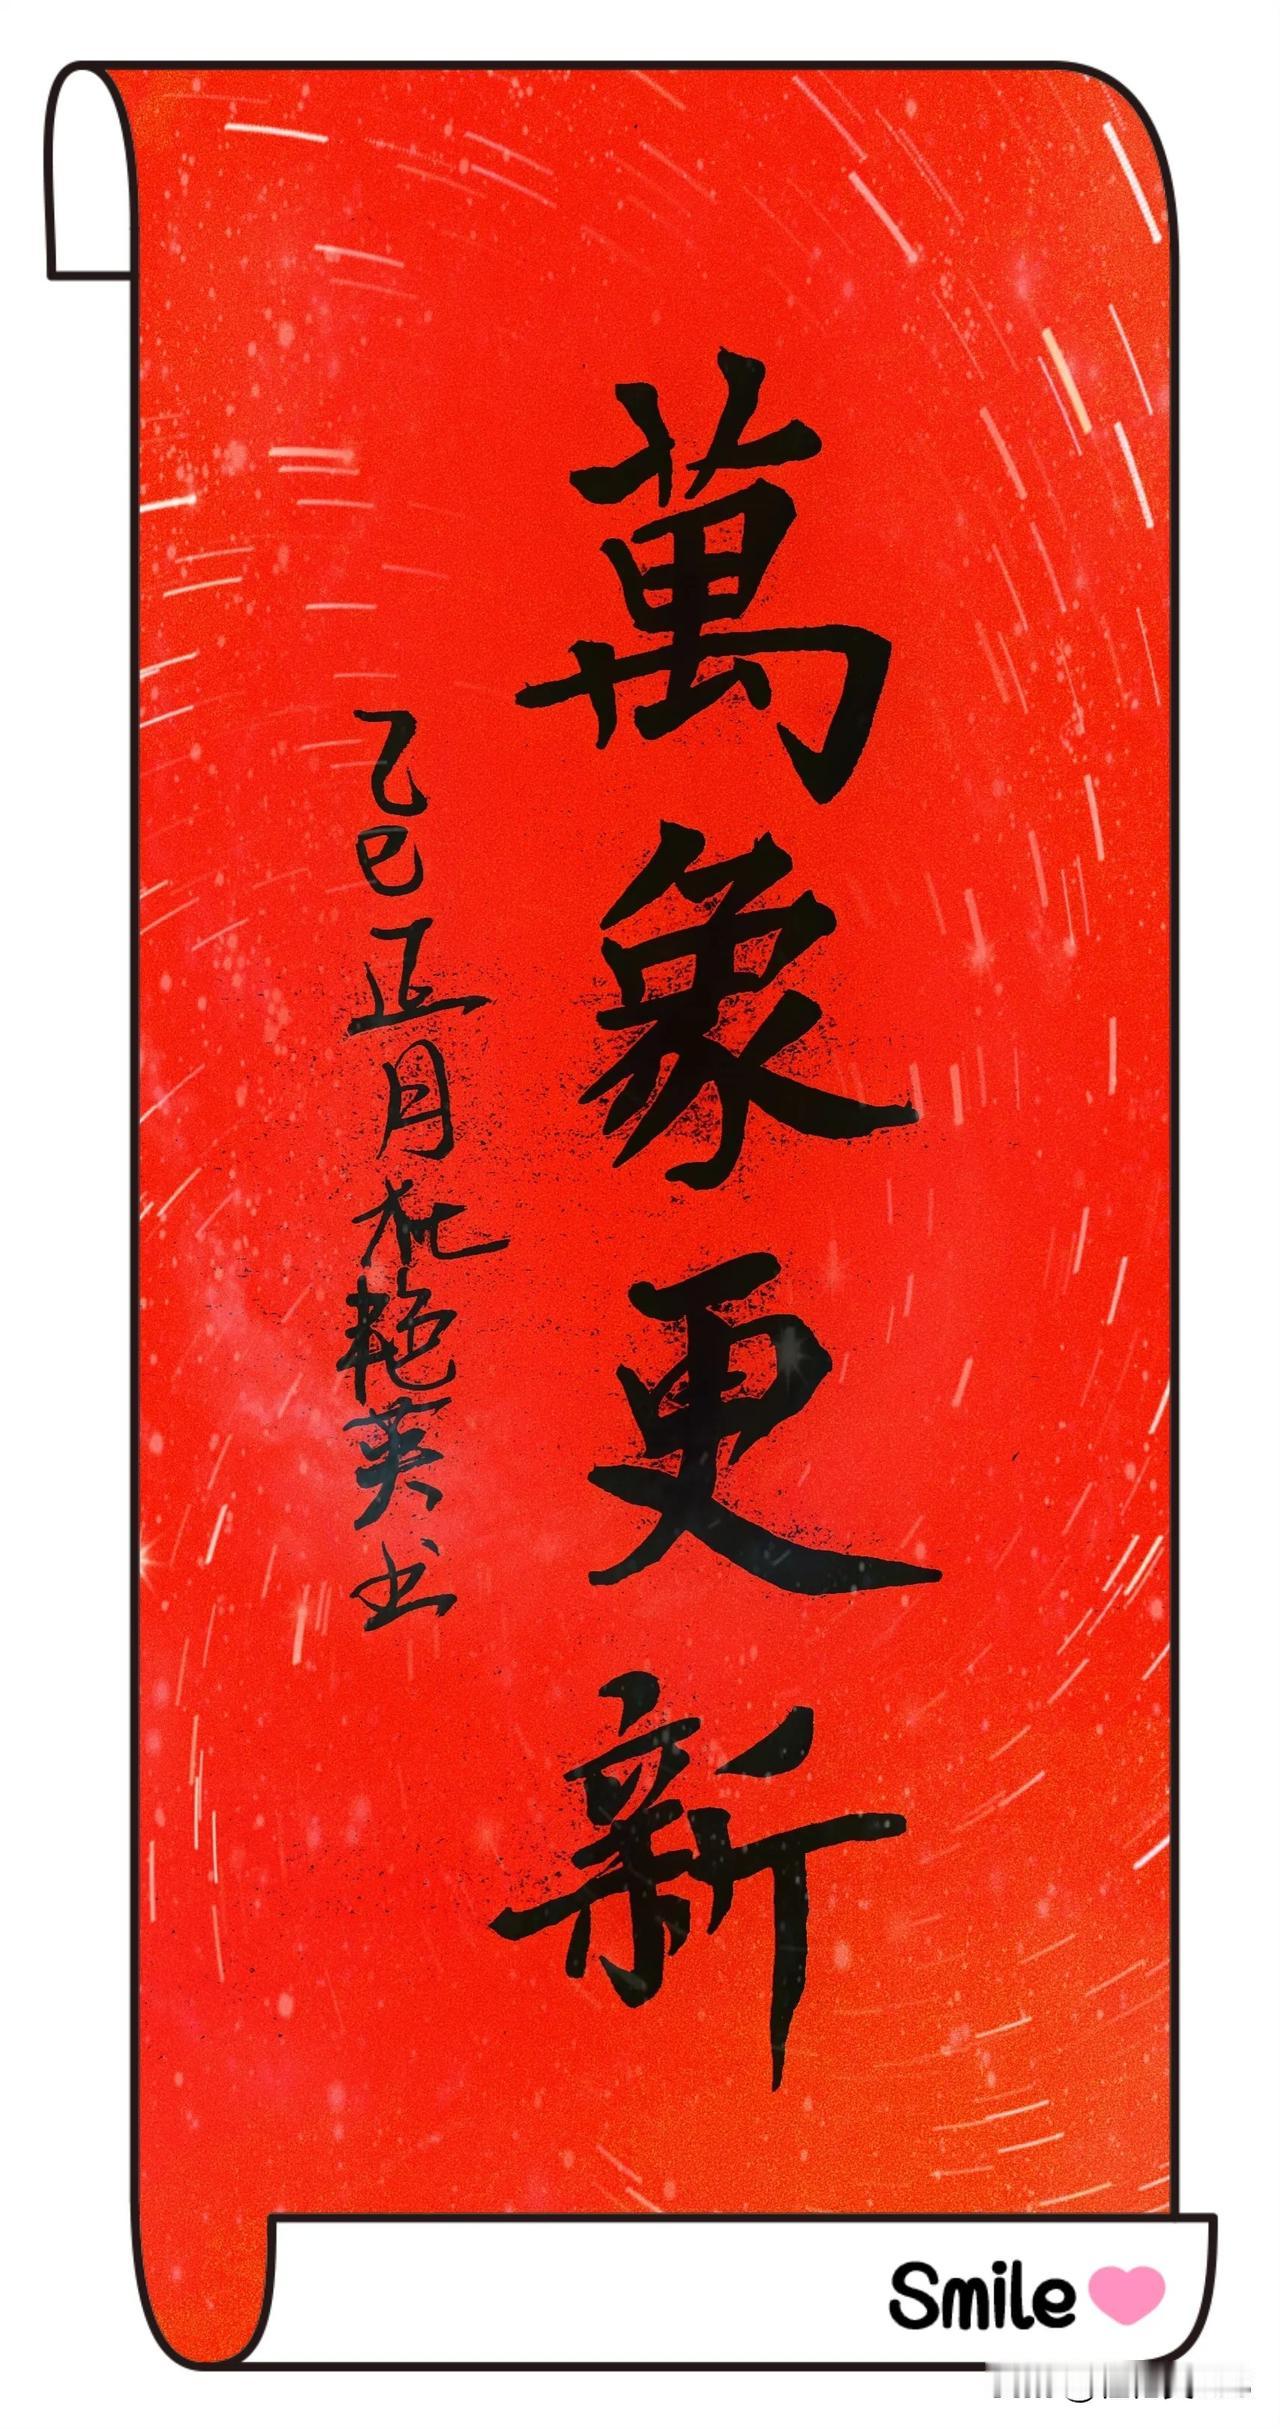 萬象更新
乙巳正月 艳英书
Smile